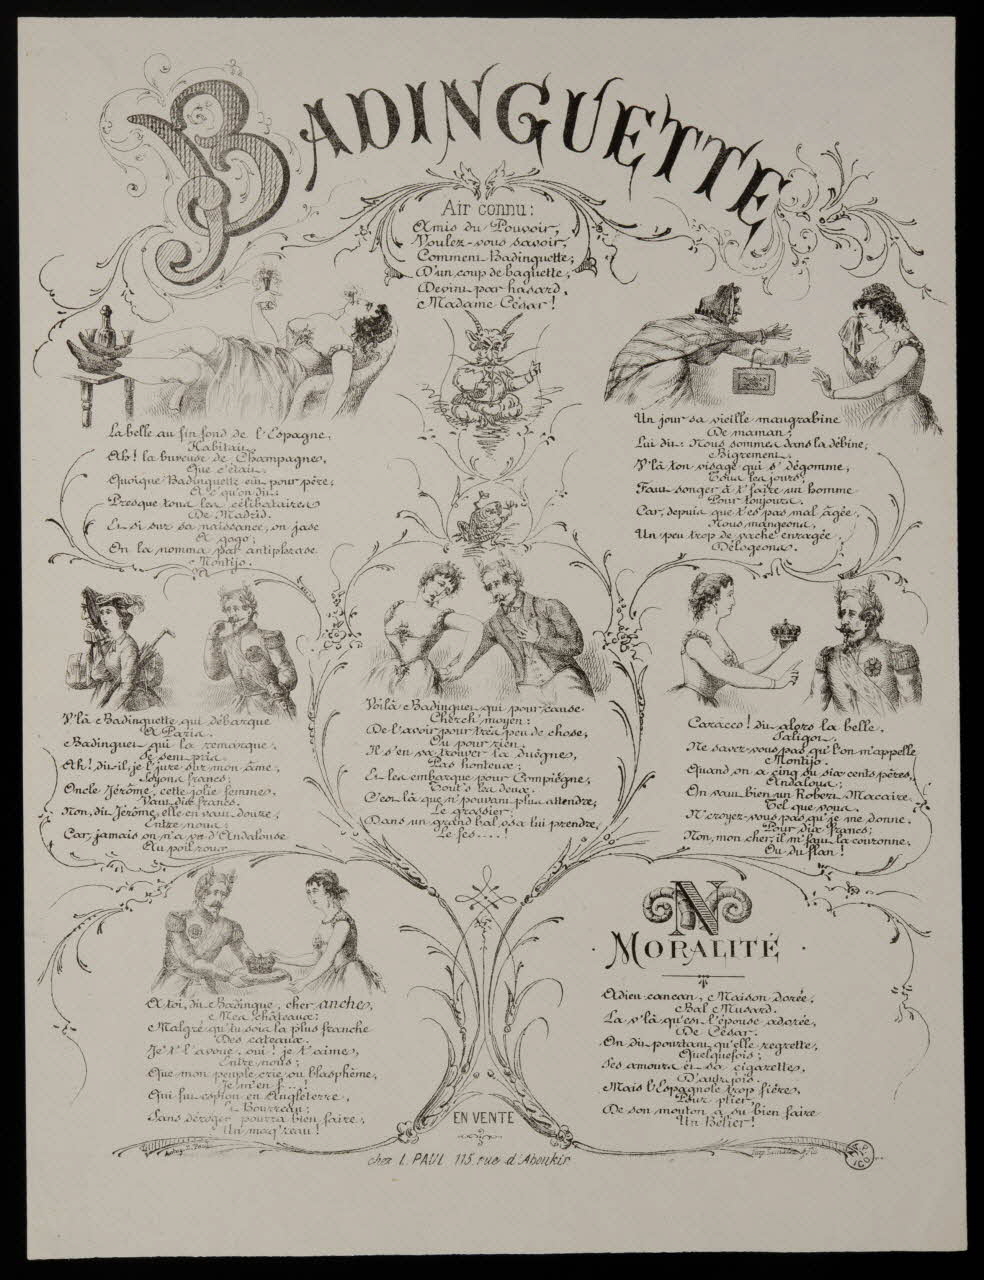 BADINGUETTE
Air connu:
Amis du Pouvoir,
Voulez-vous savoir,
Comment Badinguette,
D'un coup de baguette,
Devint par hasard,
Madame César!
La belle au fin fond de l'Espagne,
Habitait
Ah! la buveuse de Champagne,
Que c'était.
Quoique Badinguette eut pour père,
A c'qu'on dit:
Presque tous les célibataires
De Madrid.
Et si sur sa naissance, on jase
A gogo;
On la nomma par antiphrase
Montijo.
Un jour sa vieille maugrabine
De maman;
Lui dit: Nous sommes dans la débine,
Bigrement.
V'là ton visage qui s'dégomme,
Tous les jours;
Faut songer à t'faire un homme
Pour toujours.
Car, depuis que t'es pas mal âgée,
Nous mangeons,
Un peu trop de vache enragée.
Délogeons.
V'là Badinguette qui débarque
A Paris.
Badinguet qui la remarque,
Se sent pris.
Ah! dit-il, je l'jure sur mon âme,
Soyons francs;
Oncle Jérôme, cette jolie femme,
Vaut dix francs.
Non, dit Jérôme, elle en vaut douze,
Entre nous;
Car jamais on n'a vu d'Andalouse
Au poil roux.
Voilà Badinguet qui pour cause
Cherch' moyen:
De l'avoir pour très peu de chose,
Ou pour rien.
Il s'en va trouver la duègne,
Pas honteux;
Et les embarque pour Compiègne,
Tout's les deux.
C'est là que n'pouvant plus attendre,
Le grossier,
Dans un grand bal osa lui prendre,
Le fes....!
Caracco! dit alors la belle,
Saligot.
Ne savez-vous pas qu'l'on m'appelle
Montijo.
Quand on a cinq ou six cents pères,
Andalous;
On vaut bien un Robert Macaire,
Tel que vous.
N'croyez-vous pas qu'je me donne,
Pour dix francs;
Non, mon cher, il m'faut la couronne,
Ou du flan!
A toi, dit Badingue, cher anche,
Mes châteaux;
Malgré qu'tu sois la plus franche
Des cateaux.
Je t'l'avoue, oui! je t'aime,
Entre nous;
Que mon peuple crie ou blasphème,
Je m'en f...!
Qui fut espion en Angleterre,
Et Bourreau;
Sans déroger pourra bien faire,
Un maq'reau!
N
MORALITÉ
Adieu cancan, Maison dorée,
Bal Musard.
La v'là qu'est l'épouse adorée,
De César.
On dit pourtant qu'elle regrette,
Quelquefois;
Ses amours et sa cigarette,
D'autrefois.
Mais l'Espagnole trop fière,
Pour plier,
De son mouton a su bien faire
Un Bélier!
EN VENTE
chez L. PAUL 115, rue d'Aboukir